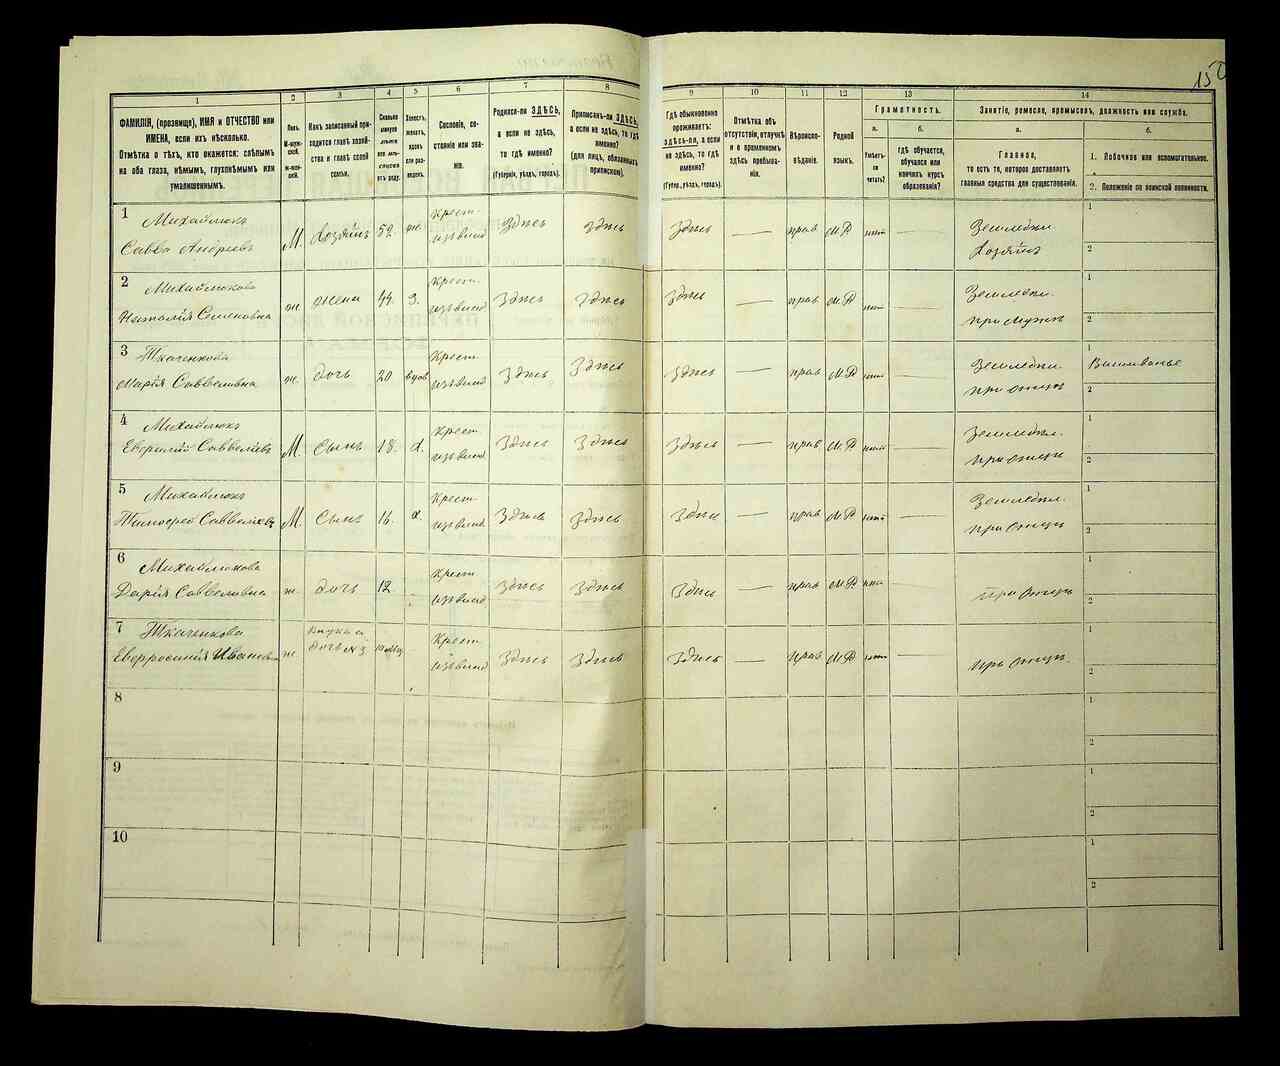 150
1
2
3
4
5
6
7
8
9
10
11
12
13
14
ФАМИЛІЯ, (прозвище), ИМЯ и ОТЧЕСТВО или
ИМЕНА, если ихъ нѣсколько.
Отмѣтка о тѣхъ, кто окажется: слѣпымъ
на оба глаза, нѣмымъ, глухонѣмымъ или
умалишеннымъ.
Полъ.
М-муж-
ской.
Ж-жен-
скій.
Какъ записанный при-
ходится главѣ хозяй-
ства и главѣ своей
семьи.
Сколько
минуло
лѣтъ
или мѣ-
сяцевъ
отъ роду.
Холостъ,
женатъ,
вдовъ
или раз-
веденъ.
Сословіе, со-
стояніе или зва-
ніе.
Родился-ли ЗДѢСЬ,
а если не здѣсь,
то гдѣ именно?
(Губернія, уѣздъ, городъ).
Приписанъ-ли ЗДѢСЬ,
а если не здѣсь, то гдѣ
именно?
(для лицъ, обязанныхъ
припискою).
Гдѣ обыкновенно
проживаетъ:
ЗДѢСЬ-ЛИ, а если
не здѣсь, то гдѣ
именно?
(Губер., уѣздъ, городъ).
Отмѣтка объ
отсутствіи, отлучкѣ
и о временномъ
здѣсь пребыва-
ніи.
Вѣроиспо-
вѣданіе.
Родной
языкъ.
Грамотность.
а.
б.
Умѣетъ-
ли
читать?
гдѣ обучается,
обучался или
кончилъ курсъ
образованія?
Занятіе, ремесло, промыселъ, должность или служба.
а.
б.
Главное,
то есть то, которое доставляетъ
главныя средства для существованія.
1. Побочное или вспомогательное.
2. Положеніе по воинской повинности.
1
Михайлюкъ
Савва Андреевъ
М. Хозяинъ 52. же.
Крест.
Здѣсь Здѣсь Здѣсь — прав М.Р нѣтъ —
Земледѣл.
Хозяинъ
1
2
2
Михайлюкова
Наталія Семеновна
ж. жена 44. З.
Крест.
Здѣсь Здѣсь Здѣсь — прав М.Р нѣтъ —
Земледѣл.
при мужѣ
1
2
3
Ткаченкова
Марія Саввелевна
ж. дочь 20 вдов
Крест.
Здѣсь Здѣсь Здѣсь — прав М.Р нѣтъ —
Земледѣл.
при отцѣ
1
Вышиванье
2
4
Михайлюкъ
Саввелевъ
М. Сынъ 18. Х.
Крест.
Здѣсь Здѣсь Здѣсь — прав М.Р нѣтъ —
Земледѣл.
при отцѣ
1
2
5
Михайлюкъ
Тимофей Саввелевъ
М. Сынъ 16. Х.
Крест.
Здѣсь Здѣсь Здѣсь — прав М.Р нѣтъ —
Земледѣл.
при отцѣ
1
2
6
Михайлюкова
Дарія Саввелевна
ж. дочь 12.
Крест.
Здѣсь Здѣсь Здѣсь — прав М.Р нѣтъ —
при отцѣ
1
2
7
Ткаченкова
Евфросинія Ивановна
ж.
внучка
дочь №3
Крест.
Здѣсь Здѣсь Здѣсь — прав М.Р нѣтъ —
при отцѣ.
1
2
8
1
2
9
1
2
10
1
2